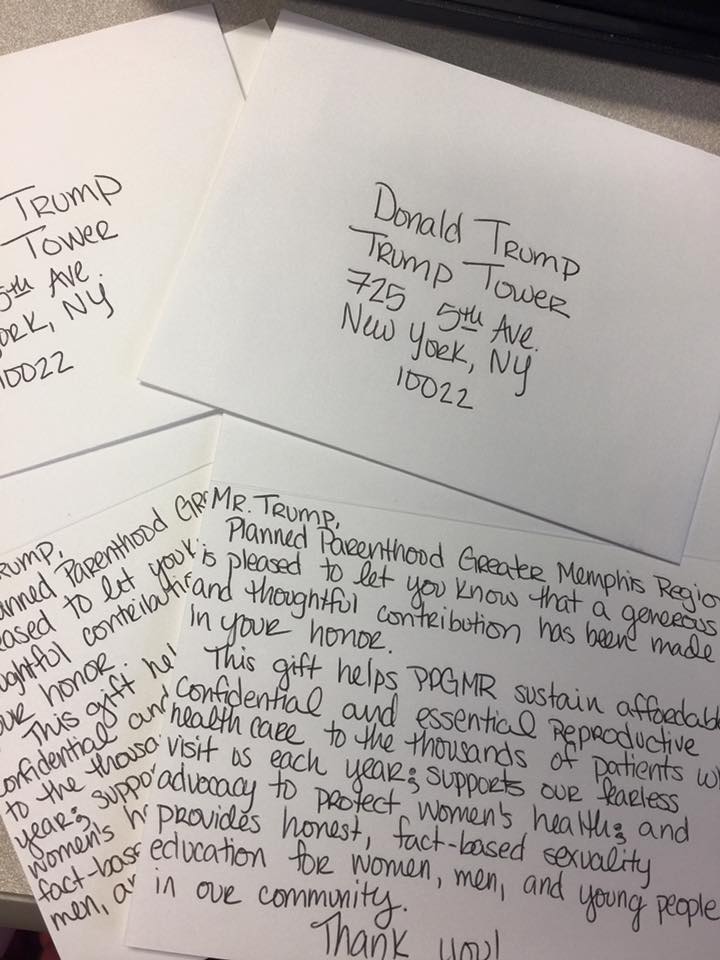 Trump
Tower
5th Ave.
ork, NY
10022
Donald Trump
Trump Tower
725 5th Ave.
New York, NY
10022
rump,
anned Parenthood Gr
eased to let you k
ughtful contributi
our honor.
This gift hel
onfidential and
to the thousa
year; suppo
women's h
fact-base
men, an
Mr. Trump,
Planned Parenthood Greater Memphis Regio
is pleased to let you know that a generous
and thoughtful contribution has been made
in your honor.
This gift helps PPGMR sustain affordabl
confidential and essential reproductive
health care to the thousands of patients w
visit us each year; supports our fearless
advocacy to protect women's health; and
provides honest, fact-based sexuality
education for women, men, and young people
in our community.
Thank you!